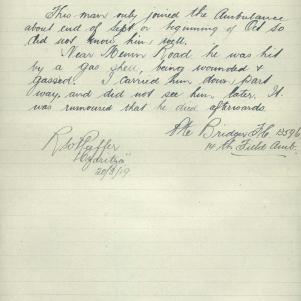 This man only joined the Ambulance
about end of Sept or beginning of Oct so
did not know him well.
Near Menin Road he was hit
by a gas shell, being wounded &
gassed. I carried him down part
way, and did not see him later. It
was rumoured that he died afterwards.
Pte Bridges F.C. 13596
14th Field Amb.
20/3/19